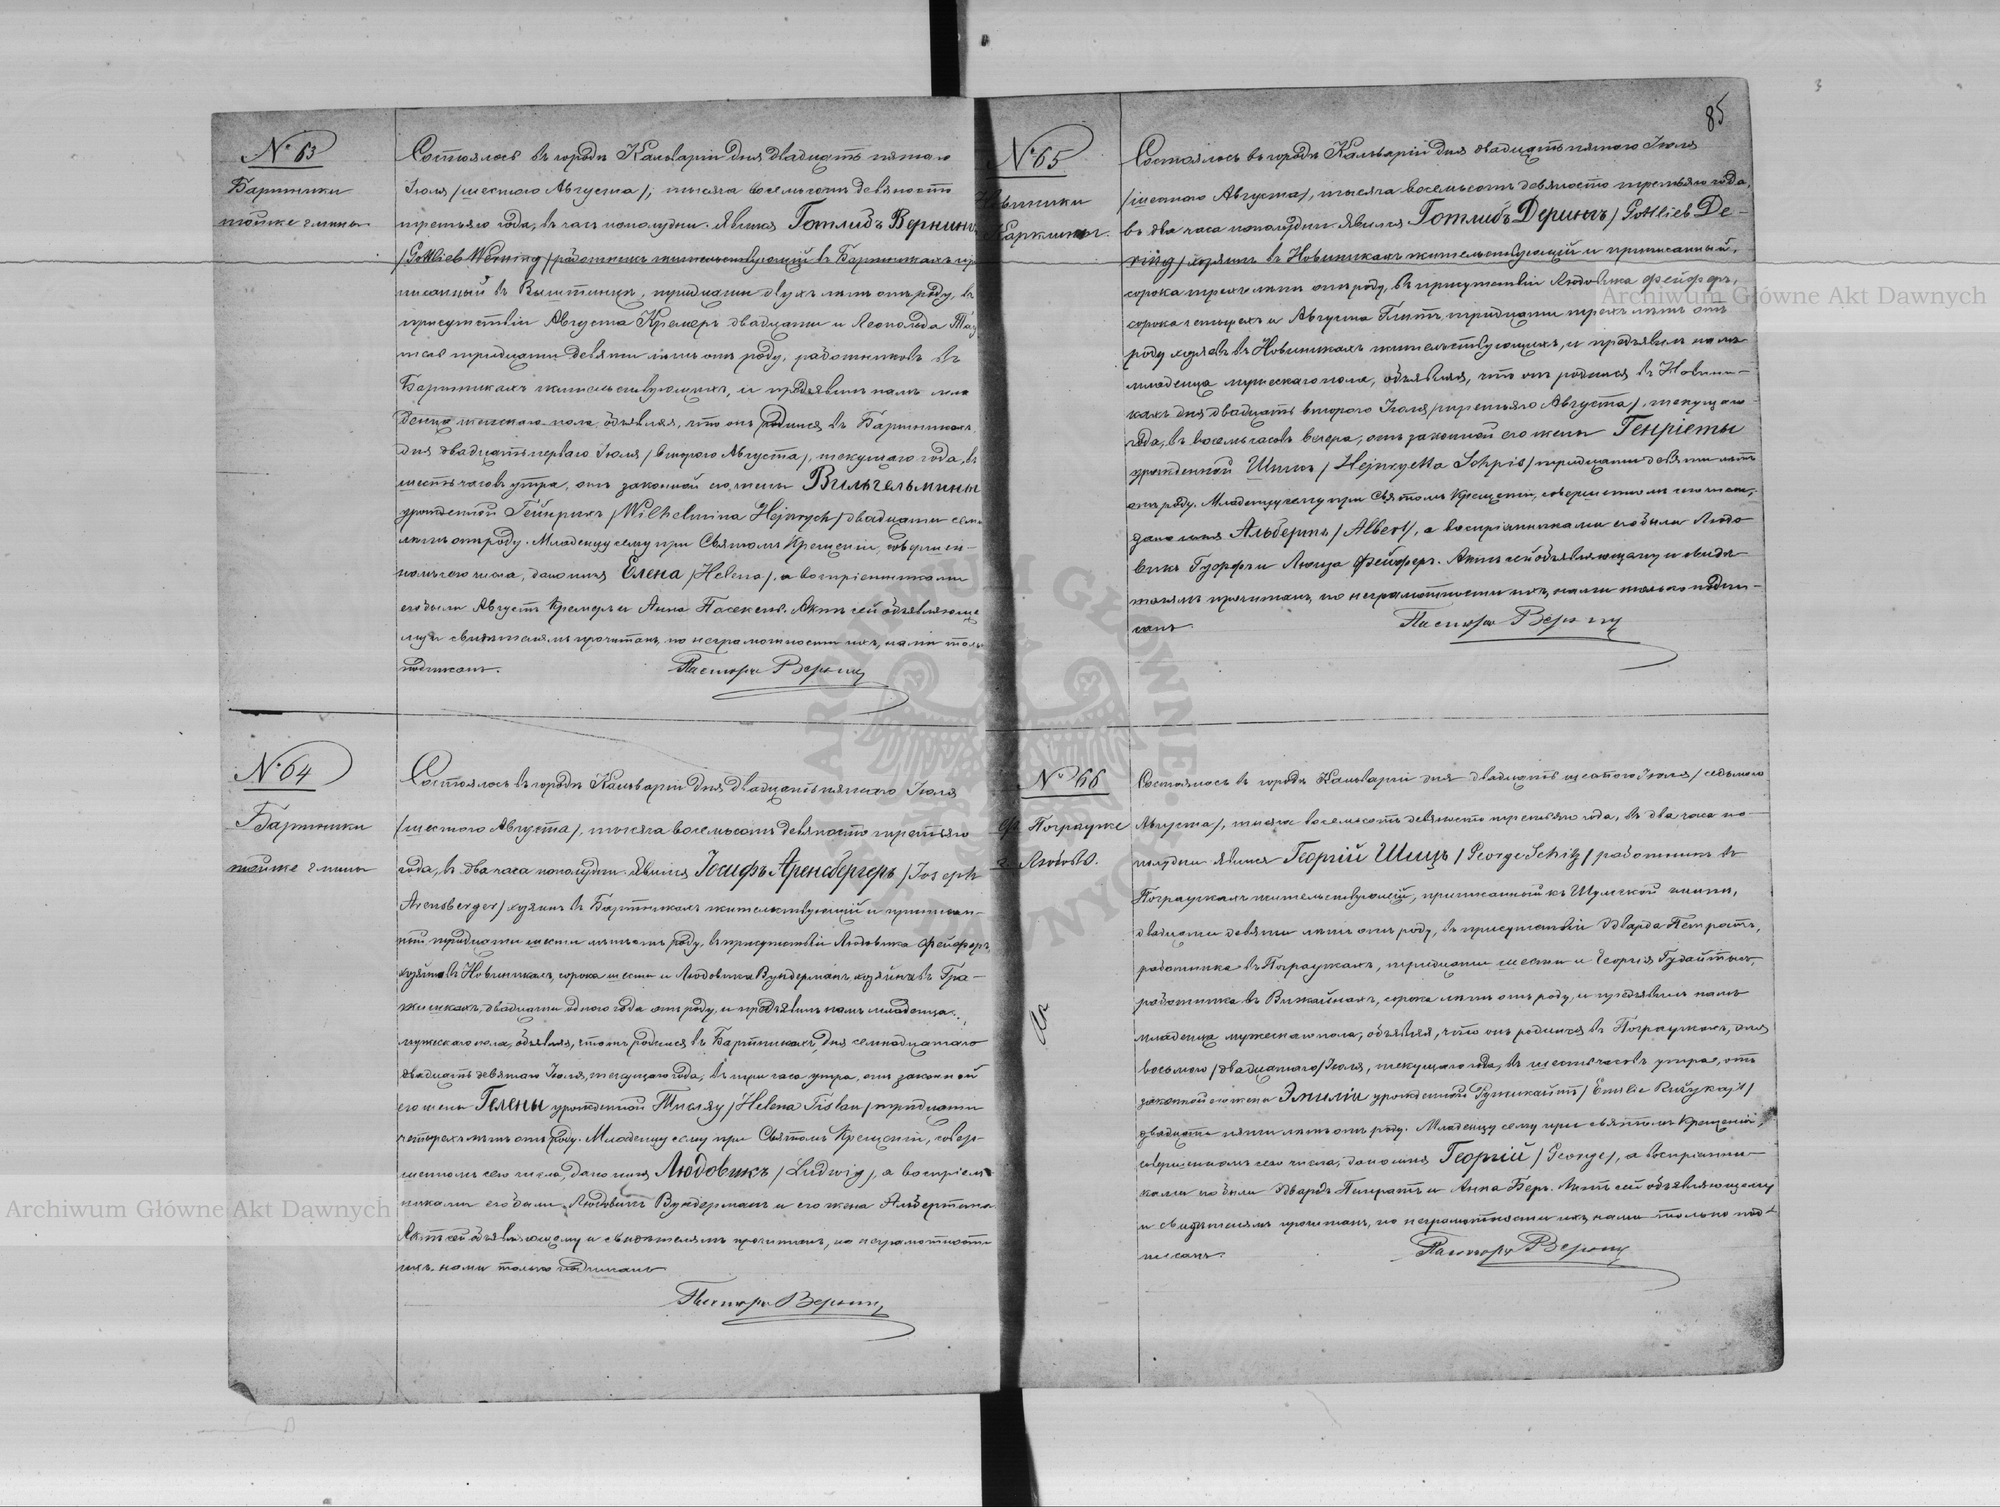 № 63
Бартники
той же гмины
Состоялось въ городѣ Кальваріи дня двадцать пятаго
Іюля /шестого Августа/, тысяча восемьсотъ девяносто
третьяго года, въ часъ пополудни. Явился Готлибъ Вернинг
/Gottlieb Werning/ работникъ жительствующій въ Бартникахъ при
писанный въ Выштынцѣ, тридцати двухъ лѣтъ отъ роду, въ
присутствіи Августа Кремеръ двадцати и Леопольда
тридцати девяти лѣтъ отъ роду, работниковъ въ
Бартникахъ жительствующихъ, и предъявилъ намъ мла
денца женскаго пола, объявляя, что онъ родился въ Бартникахъ
дня двадцать перваго Іюля /второго Августа/, текущаго года, въ
шесть часовъ утра, отъ законной его жены Вильгельмины
урожденной Гейнрихъ /Wilhelmina Hejnrych/ двадцати семи
лѣтъ отъ роду. Младенцу сему при Святомъ Крещеніи, совершен-
номъ сего числа, дано имя Елена /Helena/, а воспріемниками
его были Августъ Кремеръ и Анна. Актъ сей объявляюще
му и свидѣтелямъ прочитанъ, по неграмотности ихъ, нами толь
подписанъ.
Пасторъ Вернц
№ 64
Бартники
той же гмины
Состоялось въ городѣ Кальваріи дня двадцать пятаго Іюля
/шестого Августа/, тысяча восемьсотъ девяносто третьяго
года, въ два часа пополудни. Явился Іосифъ Аренсбергеръ /Joseph
Arensberger/ хозяинъ въ Бартникахъ жительствующій и приписан-
ный тридцати шести лѣтъ отъ роду, въ присутствіи Людовика Фейферъ,
хозяина въ Новиникахъ, сорока шести и Людовика Вундерманъ хозяина въ Гра-
жишкахъ, двадцати одного года отъ роду, и предъявилъ намъ младенца
мужескаго пола, объявляя, что онъ родился въ Бартникахъ, дня семнадцатаго
двадцать девятаго Іюля, текущаго года, въ три часа утра, отъ законной
его жены Гелены урожденной Тисляу /Helena Tislau/ тридцати
четырехъ лѣтъ отъ роду. Младенцу сему при Святомъ Крещеніи, совер-
шенномъ сего числа, дано имя Людовикъ /Ludwig/, а воспріем
никами его были Людовикъ Вундерманъ и его жена Альбертина
Актъ сей объявляющему и свидѣтелямъ прочитанъ, по неграмотности
ихъ, нами только подписанъ
Пасторъ Вернц
85
№ 65
Новиники
Каркины.
Состоялось въ городѣ Кальваріи дня двадцать пятаго Іюля
/шестого Августа/, тысяча восемьсотъ девяносто третьяго года,
въ два часа пополудни. Явился Готлибъ Дерингъ /Gottlieb De-
ring/ хозяинъ въ Новиникахъ жительствующій и приписанный,
сорока трехъ лѣтъ отъ роду, въ присутствіи Людовика Фейферъ,
сорока четырехъ и Августа тридцати трехъ лѣтъ отъ
роду хозяевъ въ Новиникахъ жительствующихъ, и предъявилъ намъ
младенца мужескаго пола, объявляя, что онъ родился въ Новини-
кахъ дня двадцать второго Іюля /третьяго Августа/, текущаго
года, въ восемь часовъ вечера, отъ законной его жены Генріеты
урожденной Шписъ /Hejnryetta Schpis/ тридцати девяти лѣтъ
отъ роду. Младенцу сему при Святомъ Крещеніи, совершенномъ сего числа,
дано имя Альбертъ /Albert/, а воспріемниками его были Людо
викъ и Луиза Фейферъ. Актъ сей объявляющему и свидѣ-
телямъ прочитанъ, по неграмотности ихъ, нами только подпи-
санъ.
Пасторъ Вернц
№ 66
Пограужe
г. Любово.
Состоялось въ городѣ Кальваріи дня двадцать шестого Іюля /седьмого
Августа/, тысяча восемьсотъ девяносто третьяго года, въ два часа по-
полудни явился Георгій Шицъ /George Schitz/ работникъ въ
Пограужахъ жительствующій, приписанный къ гминѣ,
двадцати девяти лѣтъ отъ роду, въ присутствіи Эдварда
работника въ Пограужахъ, тридцати шести и Георгія
работника въ Вижайнахъ, сорока лѣтъ отъ роду, и предъявилъ намъ
младенца мужескаго пола, объявляя, что онъ родился въ Пограужахъ, дня
восьмого /двадцатаго/ Іюля, текущаго года, въ шесть часовъ утра, отъ
законной его жены Эмиліи урожденной Ружикайтъ /Emilie Ružykajt/
двадцати пяти лѣтъ отъ роду. Младенцу сему при святомъ Крещеніи,
совершенномъ сего числа, дано имя Георгій /George/, а воспріемни-
ками его были Эдвардъ и Анна Беръ. Актъ сей объявляющему
и свидѣтелямъ прочитанъ, по неграмотности ихъ нами только под-
писанъ.
Пасторъ Вернц
Archiwum Główne Akt Dawnych
Archiwum Główne Akt Dawnych
ARCHIWUM GŁÓWNE AKT DAWNYCH